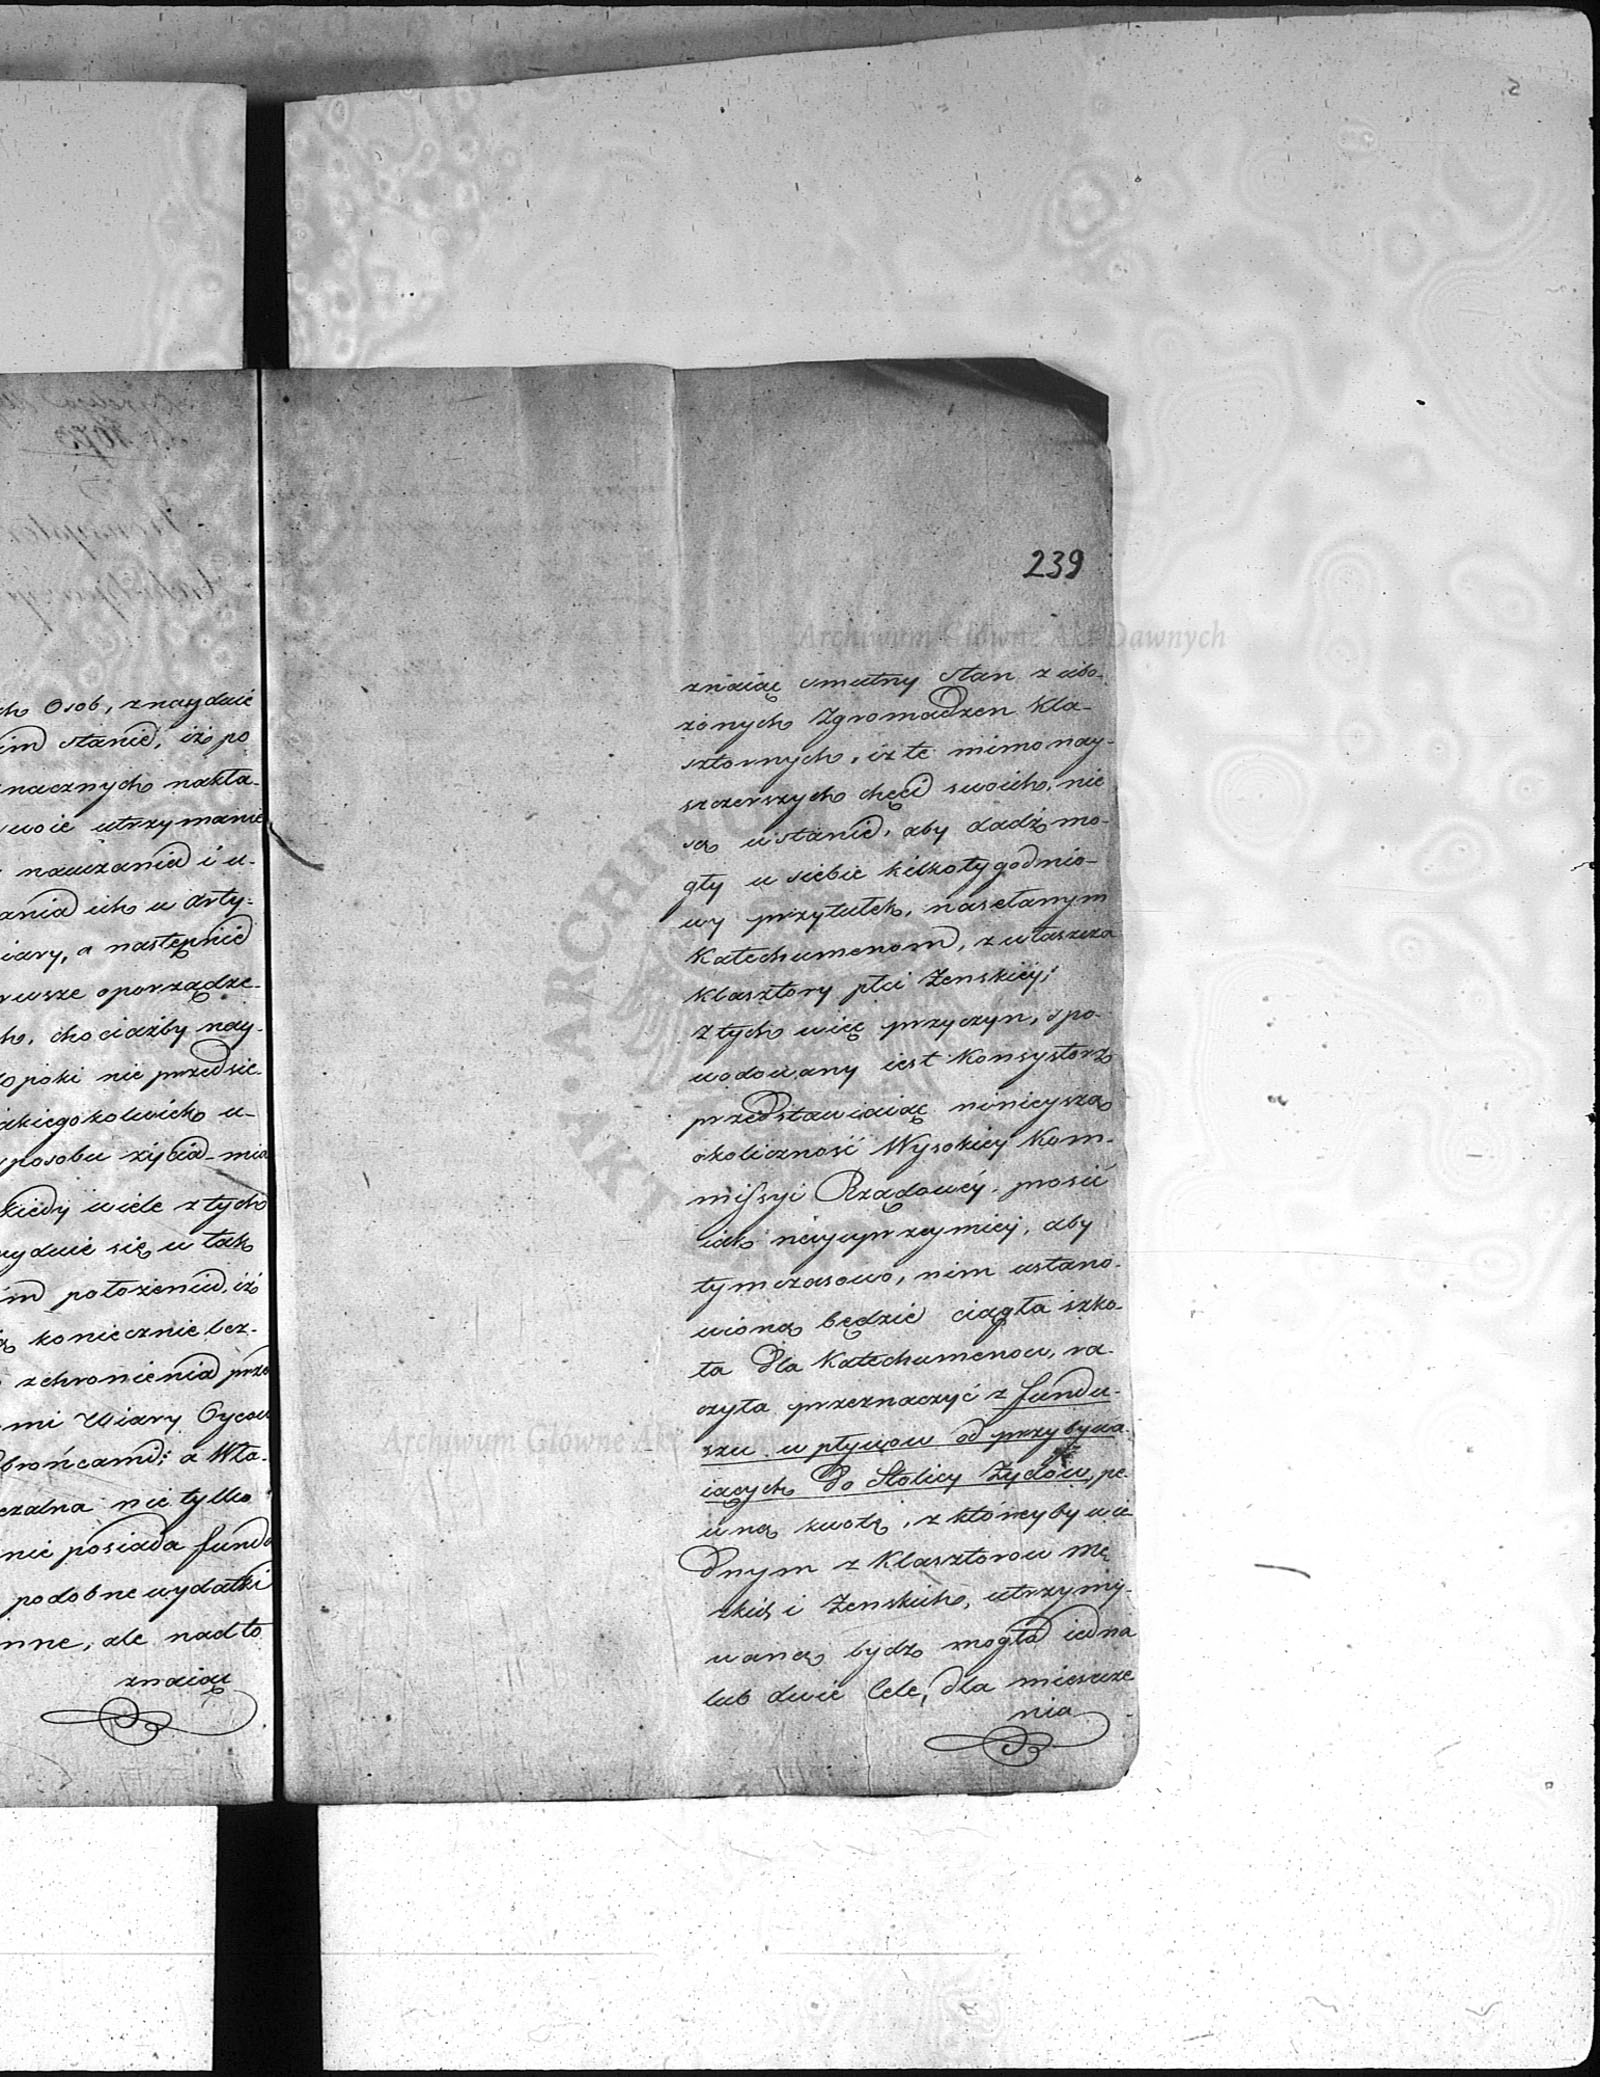 ch Osob, znayduie
im stanie, iż po
znacznych nakła-
swoie utrzymanie
nauczania i u-
ania ich w Arty-
iary, a następnie
rwsze oporządze-
ch, chociażby nay-
opoki nie przedsie-
iakiegokolwiek u-
sposobu życia mia
kiedy wiele z tych
ayduie się w tak
im położeniu, iż
ą koniecznie bez-
schronienia prze
mi Wiary Oycow
brońcami; a Wła-
czalna nie tylko
nie posiada fundu
podobne wydatki
nne, ale nadto
znaiąc
239
znaiąc smutny Stan z ubo-
żonych Zgromadzen Kla-
sztornych, iż te mimo nay-
szczerszych chęci swoich, nie
są wstanie, aby dadź mo-
gły u siebie kilkotygodnio-
wy przytułek, nasełanym
Katechumenom, z właszcza
Klasztory płci Żenskiey;
Ztych więc przyczyn, spo-
wodowany iest Konsystorz
przedstawiaiąc ninieyszą
okoliczność Wysokiey Kom-
missyi Rządowéy, prosić
iak nayuprzeymiey, aby
tymczasowo, nim ustano-
wioną będzie ciągła szko-
ła Dla Katechumenow, ra-
czyła przeznaczyć z fundu-
szu wpływow od przybywa-
iących Do Stolicy Żydów, pe-
wną kwotę, z któreyby w ie-
Dnym z Klasztorow Mę
zkich i Żenskich, utrzymy-
waną bydź mogła iedna
lub dwie Cele, dla mieszcze
nia
Archiwum Główne Akt Dawnych
Archiwum Główne Akt Dawnych